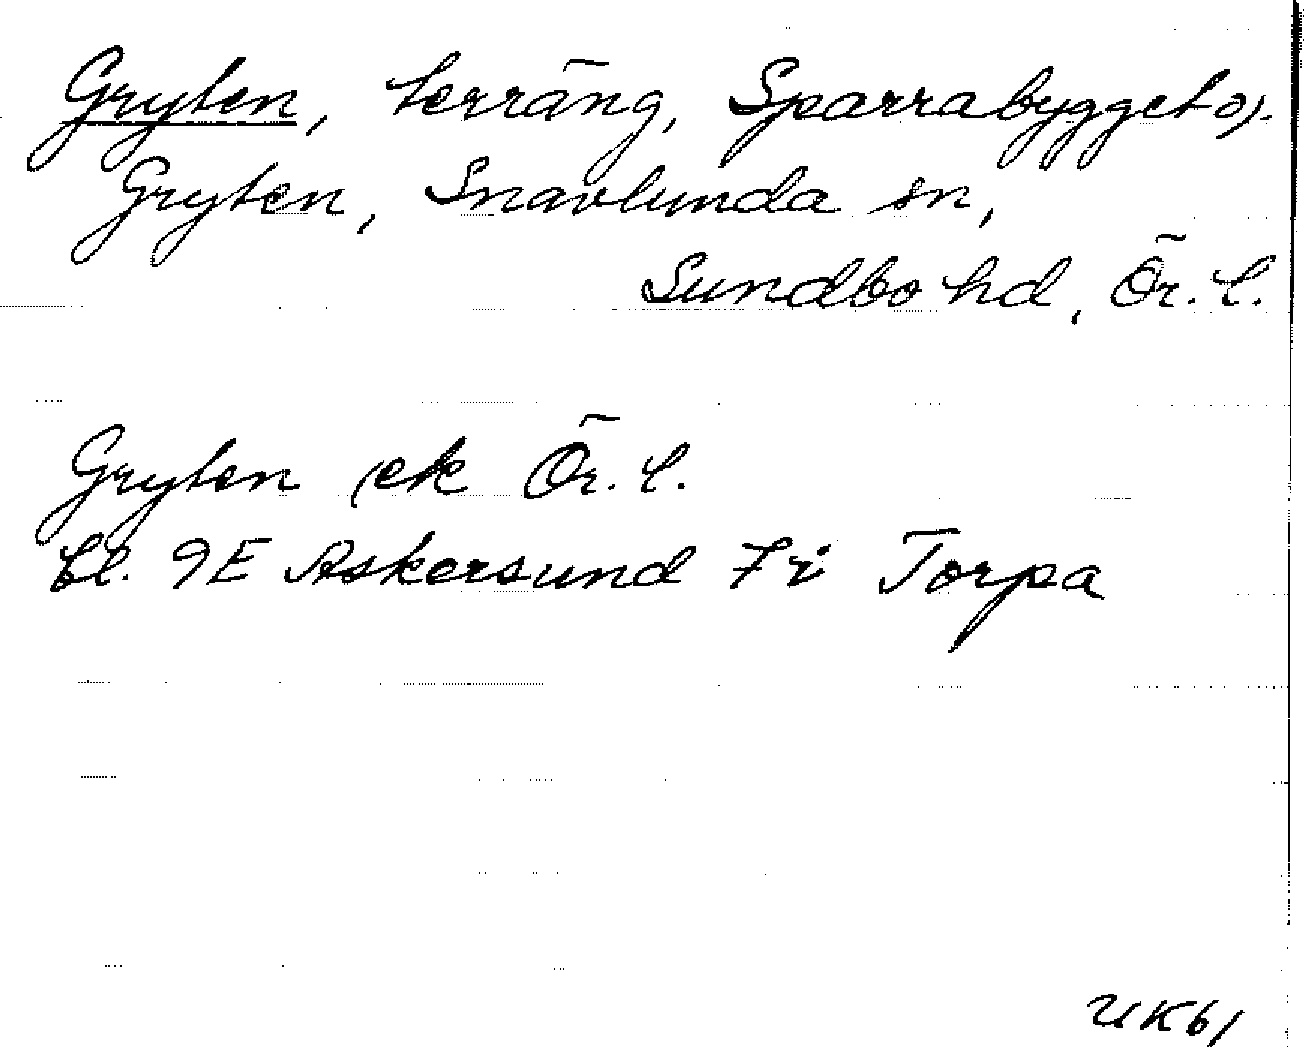 Gryten, terräng, Sparrabygget o.
Gryten, Snavlunda sn,
Sundbo hd, Ör. l.
Gryten ek Ör. l.
bl. 9E Askersund 7i Torpa
UK61